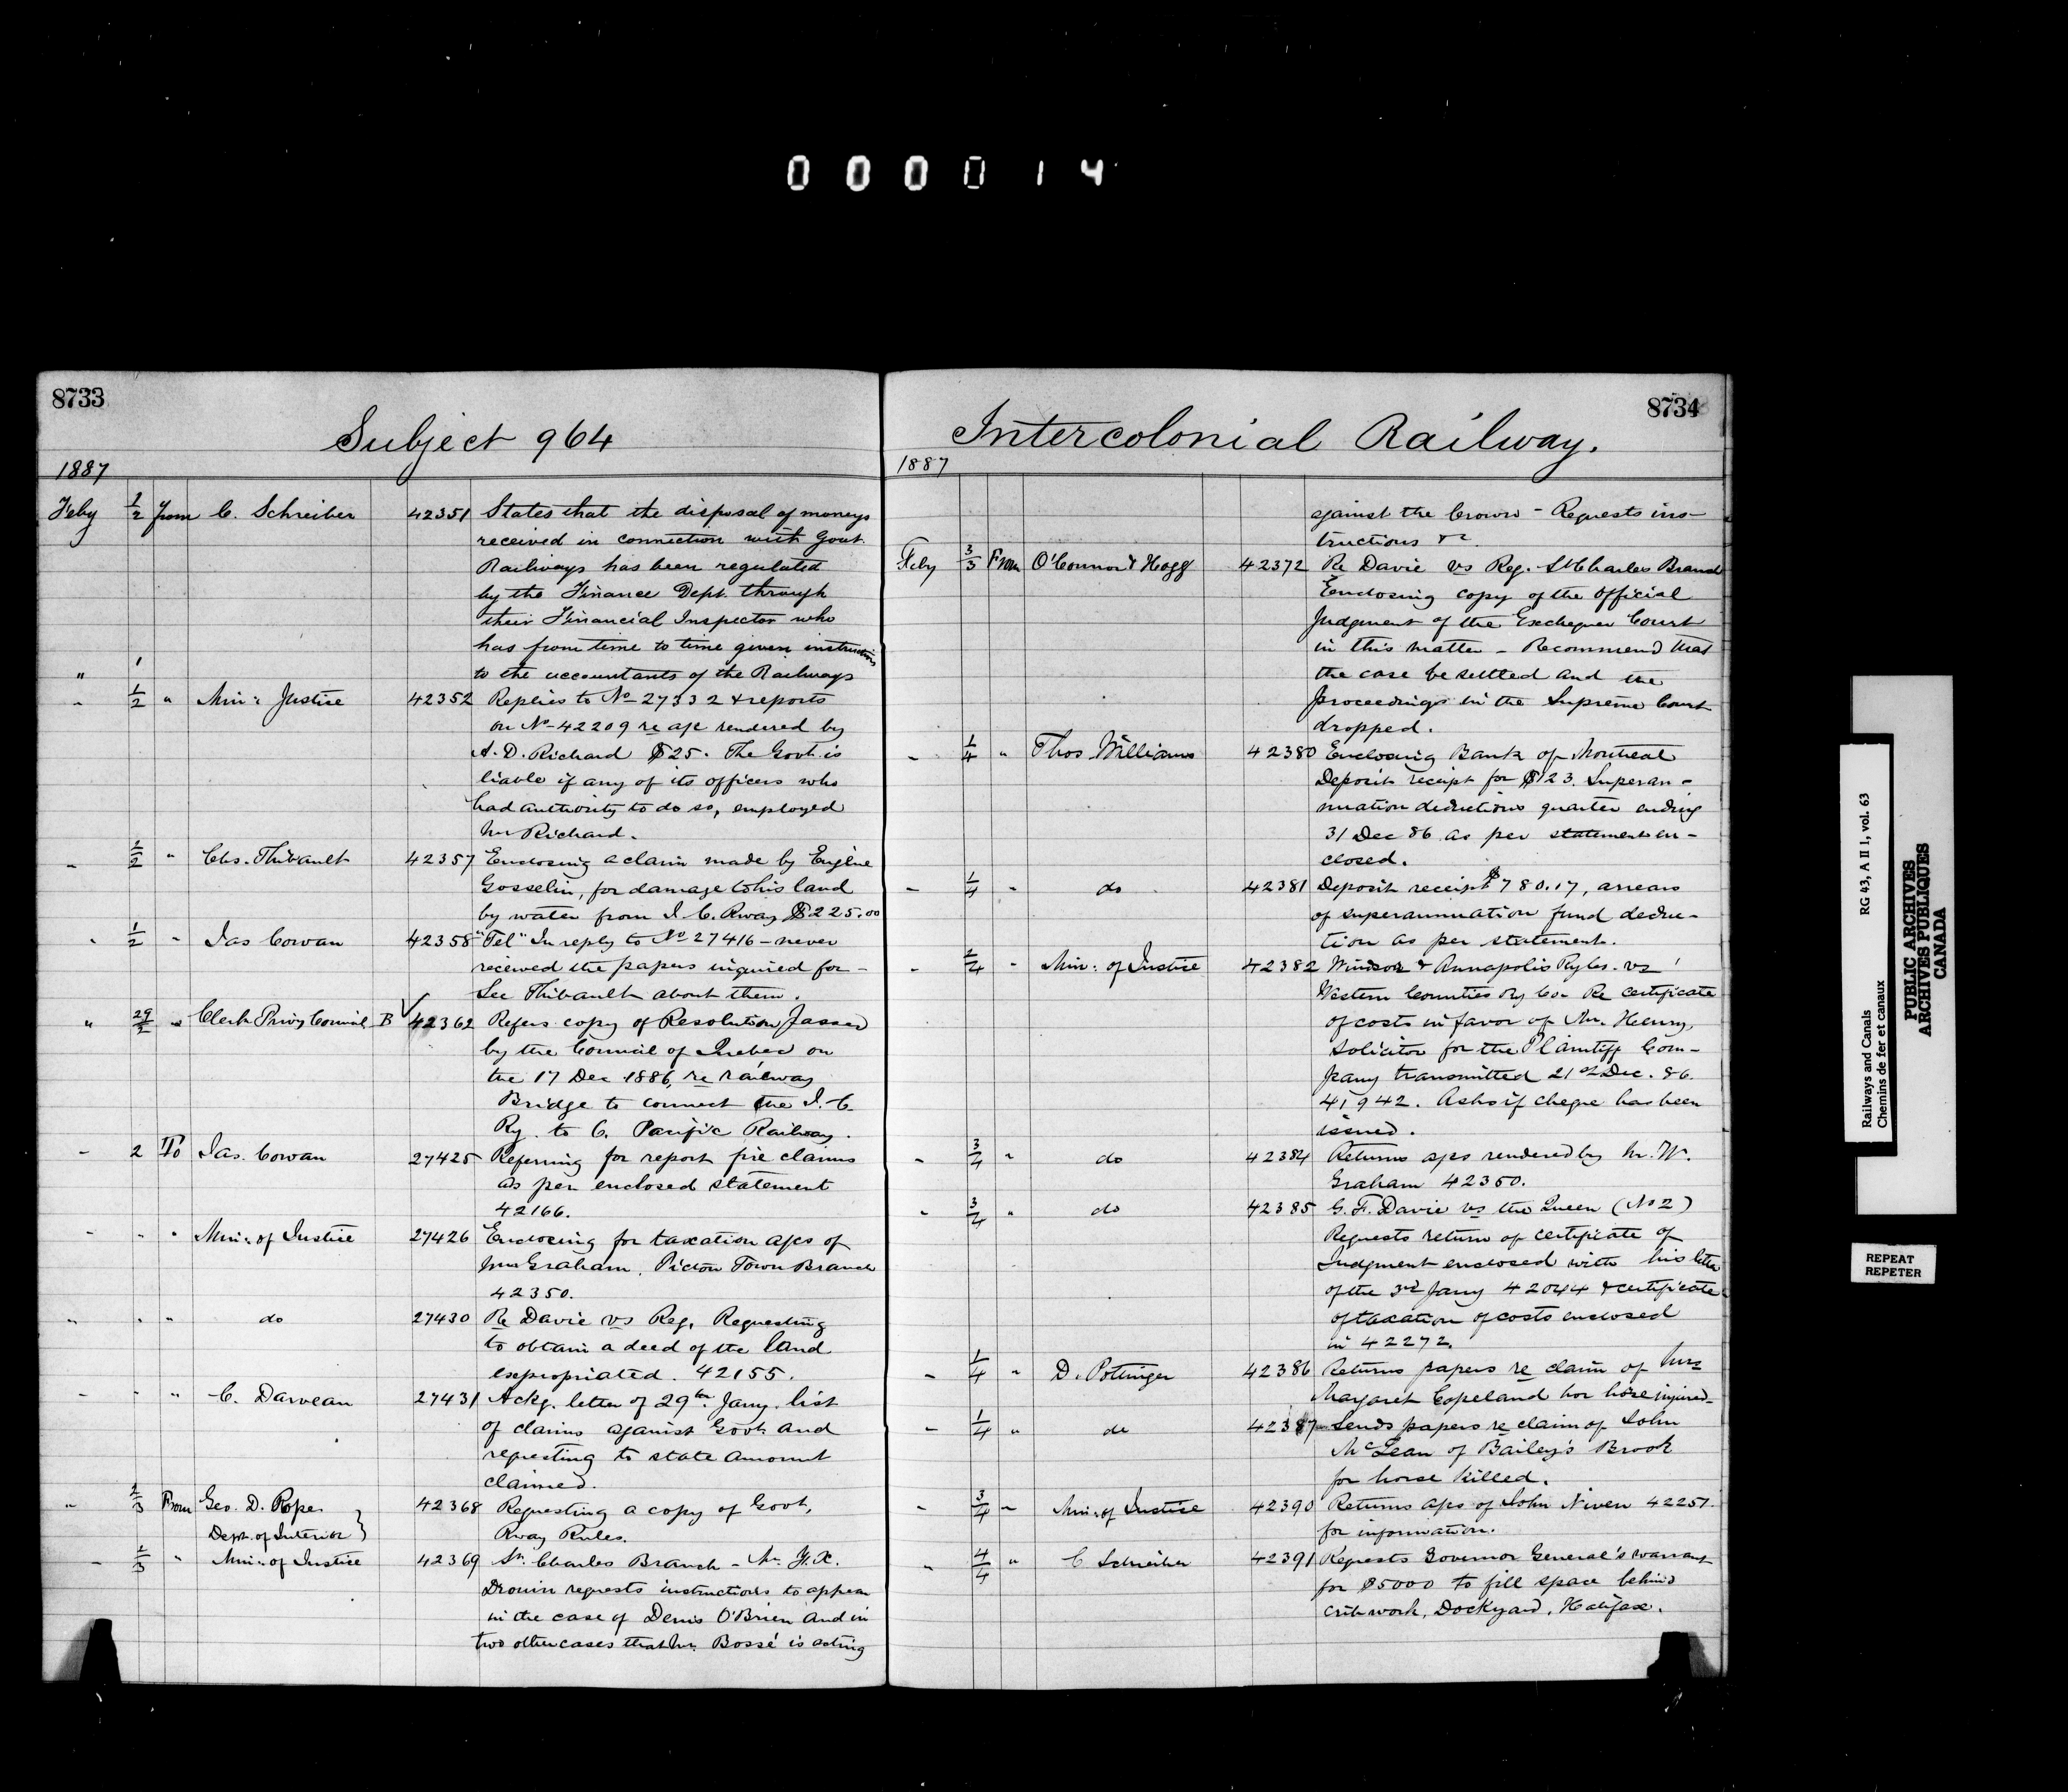 000014
8733
Subject 964
1887
Feby 1/2 from C. Schreiber 42351 States that the disposal of moneys
received in connection with Govt.
Railways has been regulated
by the Finance Dept. through
their Financial Inspector who
has from time to time given instructions
to the accountants of the Railways
" 1/2 " Min: Justice 42352 Replies to No 27332 & reports
on No 42209 re a/c rendered by
A. D. Richard $25. The Govt. is
liable if any of its officers who
had authority to do so, employed
Mr Richard.
" 1/2 " Chs. Thibault 42357 Enclosing a claim made by Eugène
Gosselin, for damage to his land
by water from I. C. Rway $225.00
" 1/2 " Jas Cowan 42358 "Tel" In reply to No 27416 - never
received the papers inquired for -
See Thibault about them.
" 29/2 " Clerk Privy Council B 42362 Refers copy of Resolution passed
by the Council of Quebec on
the 17 Dec 1886, re railway
Bridge to connect the I. C.
Ry. to C. Pacific Railway.
" 2 To Jas. Cowan 27425 Referring for report fire claims
as per enclosed statement
42166.
" " " Min: of Justice 27426 Enclosing for taxation a/cs of
Mr Graham, Pictou Town Branch
42350.
" " " do 27430 Re Davie vs Reg. Requesting
to obtain a deed of the land
expropriated. 42155.
" " " C. Darveau 27431 Ackg. letter of 29th Jany. list
of claims against Govt. and
requesting to state amount
claimed.
" 2/3 From Geo. D. Pope 42368 Requesting a copy of Govt.
Dept. of Interior } Rway Rules.
" 1/3 " Min: of Justice 42369 St. Charles Branch - Mr. F. X.
Drouin requests instructions to appear
in the case of Denis O'Brien and in
two other cases that Mr. Bossé is acting
8734
Intercolonial Railway.
1887
against the Crown - Requests ins-
tructions &c.
Feby 3/3 From O'Connor & Hogg 42372 Re Davie vs Reg. St Charles Branch
Enclosing copy of the official
Judgment of the Exchequer Court
in this matter - Recommend that
the case be settled and the
proceedings in the Supreme Court
dropped.
" 1/4 " Thos Williams 42380 Enclosing Bank of Montreal
Deposit receipt for $123. Superan-
nuation deductions quarter ending
31 Dec 86 as per statement en-
closed.
" 1/4 " do 42381 Deposit receipt $780.17, arrears
of superannuation fund deduc-
tion as per statement.
" 2/4 " Min: of Justice 42382 Windsor & Annapolis Rylws. vs
Western Counties Ry Co. Re certificate
of costs in favor of Mr. Henry,
solicitor for the Plaintiff Com-
pany transmitted 21st Dec. 86.
41942. Asks if cheque has been
issued.
" 3/4 " do 42384 Returns a/cs rendered by Mr. W.
Graham 42350.
" 3/4 " do 42385 G. F. Davie vs the Queen (No 2)
Requests return of certificate of
Judgment enclosed with his letter
of the 3rd Jany 42044 & certificate
of taxation of costs enclosed
in 42272.
" 1/4 " D. Pottinger 42386 Returns papers re claim of Mrs
Margaret Copeland for horse injured
" 1/4 " do 42387 Sends papers re claim of John
McLean of Bailey's Brook
for horse killed.
" 3/4 " Min: of Justice 42390 Returns a/cs of John Niven 42251.
for information.
" 4/4 " C Schreiber 42391 Requests Governor General's warrant
for $5000 to fill space behind
cribwork, Dockyard, Halifax.
Railways and Canals RG 43, A II 1, vol. 63
Chemins de fer et canaux
PUBLIC ARCHIVES
ARCHIVES PUBLIQUES
CANADA
REPEAT
REPETER